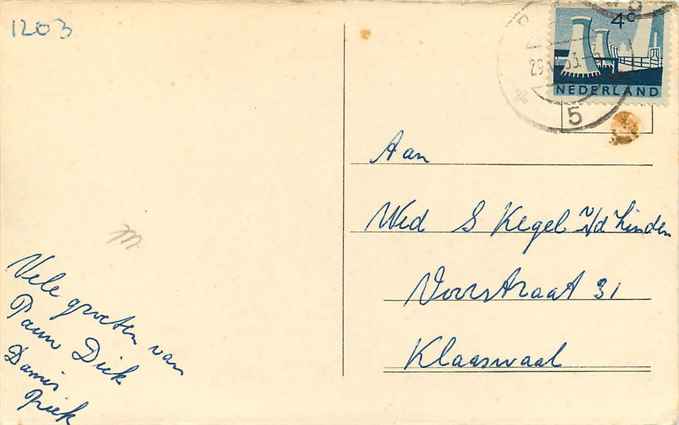 1203
4c
NEDERLAND
5
Aan
Wed S Kegel v/d Linden
Voorstraat 31
Klaaswaal
Vele groeten van
Dick